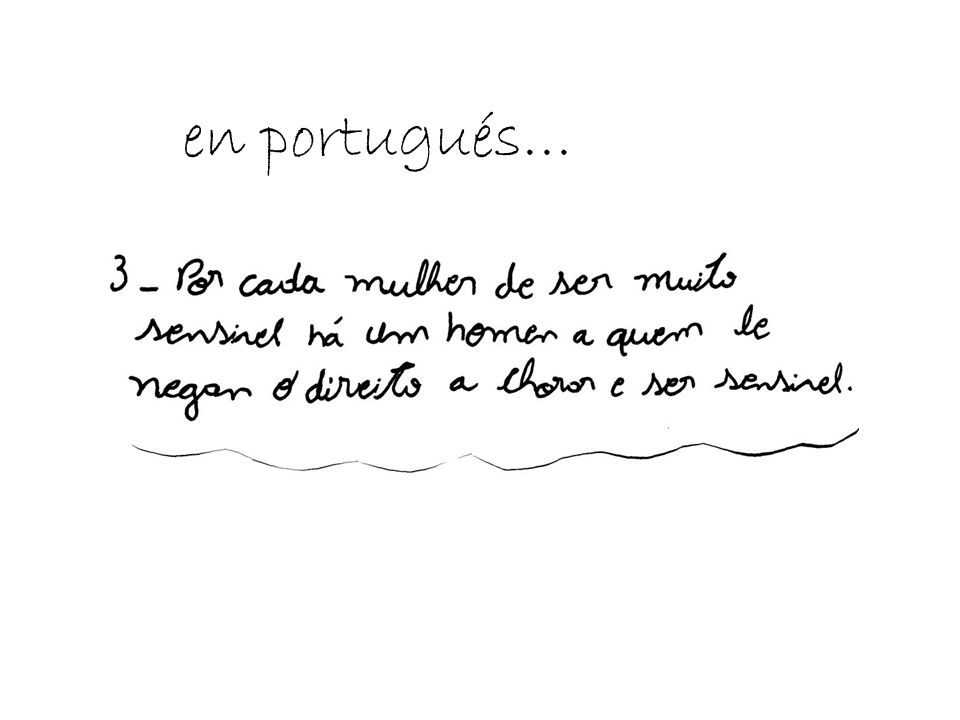 en portugués...
3 - Por cada mulher de ser muito
sensivel há um homen a quem le
negan o direito a choror e ser sensivel.